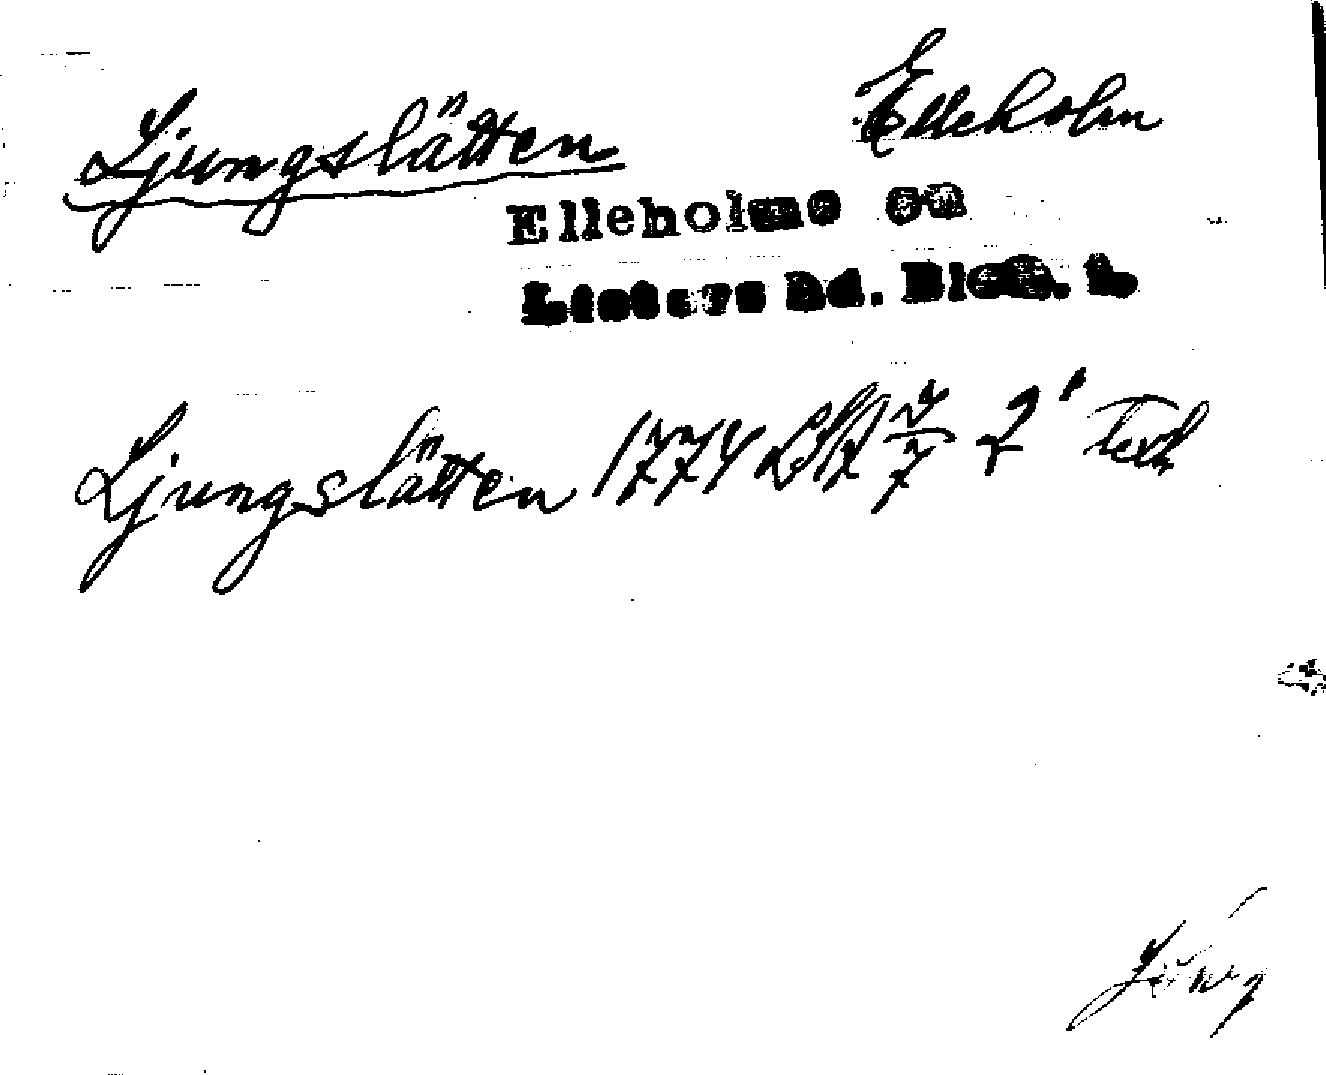 Ljungslätten Elleholm
Elleholms sn
Listers hd. Blek. l.
Ljungslätten 1774 LSA 7/7 2' Text
Ljung